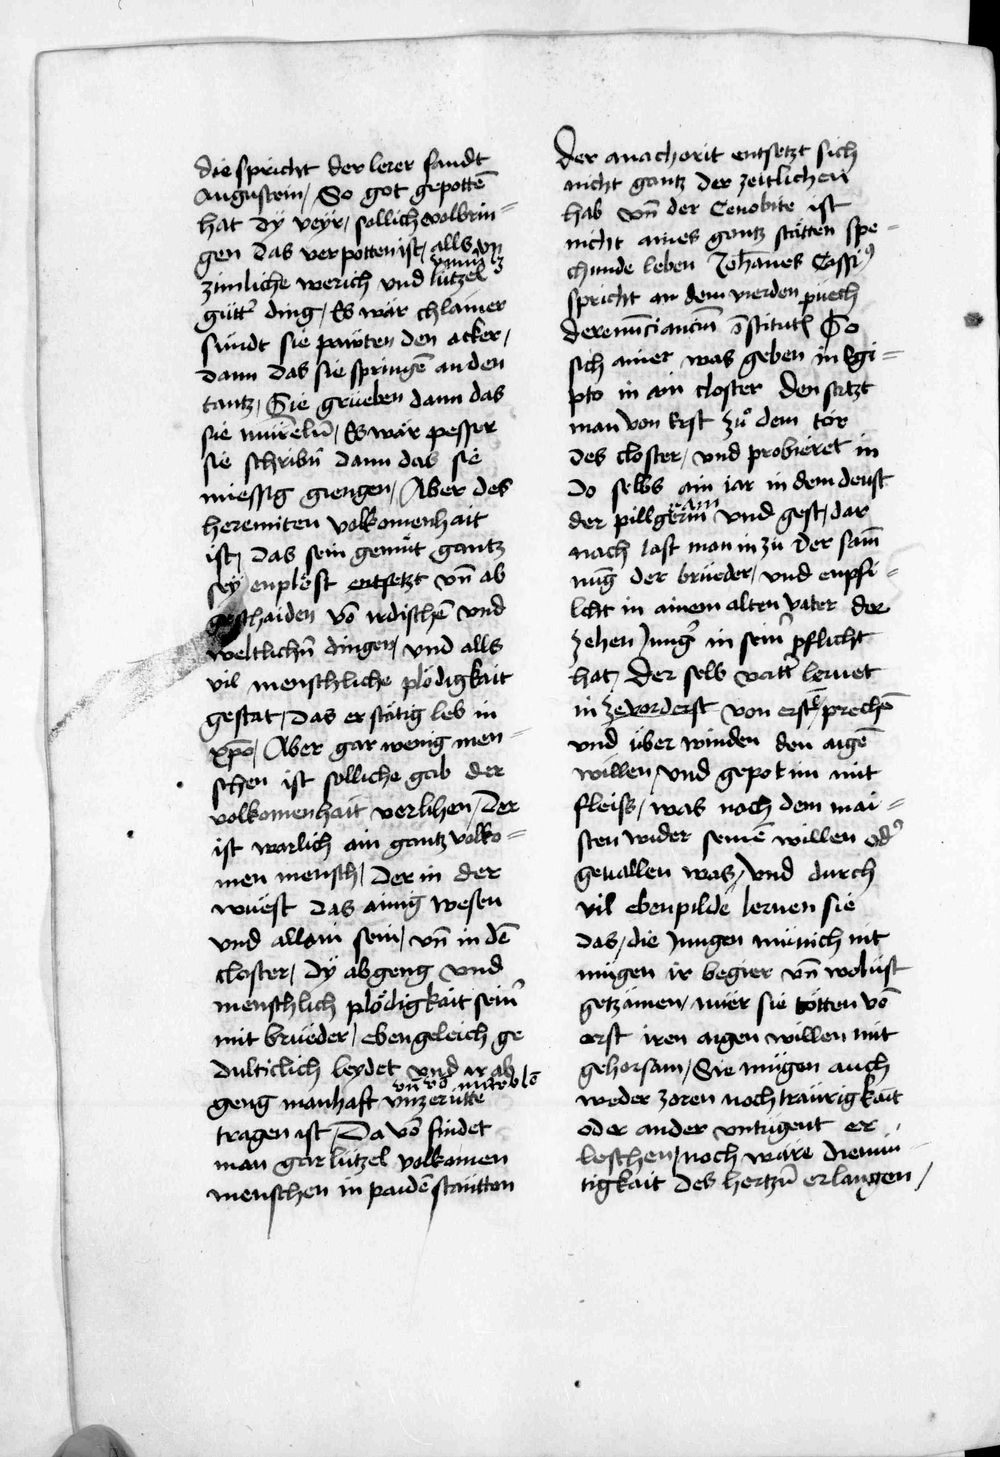 die spricht der lerer sandt
Augustein / So got gepottē
hat dÿ veyr / sollich volbrin=
gen das verpotten ist / alls vn
zimliche werich und lützel
güttˀ ding / Es wär chlainer
sündt sie pawten den acker /
dann das sie springē an den
tantz / Sie grüeben dann das
sie Es wär pesser
sie schribñ dann das sie
miessig giengen / Aber des
heremiten volkomenhait
ist / das sein gemüt gantz
seÿ enplöst entsetzt vn̄ ab
geschaiden vō irdischē und
weltlichñ dingen / und alls
vil menschliche plödigkait
gestat / das er stätig leb in
xp̄o / Aber gar wenig men=
schen ist solliche gab der
volkomenhait verlihen / Der
ist warlich ain gantz volko=
men mensch / der in der
wuest das ainig wesen
und allain sein / vn̄ in dē
closter / dÿ abgeng und
menschlich plödigkait seinˀ
mit brüeder / ebengeleich ge
dulticlich leydet und ir ab
geng manhaft vnzerütte
tragen ist / Da vō findet
man gar lützel volkomen
menschen in paidē stäntten
Der anachorit entsetzt sich
nicht gantz der zeitlichen
hab vn̄ der Cenobite ist
nicht aines gantz stätten spe=
chunde leben Joh̄anes Cassiꝰ
spricht an dem vierden püech
So
sich ainer was geben in Egi=
pto in ain closter den setzt
man von erst zů dem tor
des closter / und probieret in
do selbs ain iar in dem denst
der pillgeram und gest / dar
nach last man in zu der sam̄
nūg der brüeder / und enpfi=
lcht in ainem alten vater der
zehen Jungˀ in seinˀ pflicht
hat / Der selb vattˀ lernet
in zevorderst von erst prechē
und über winden den aigē
willen / und gepot im mit
fleiss / was nach dem mai=
sten wider seinē willen odˀ
gevallen was / Und durch
vil ebenpilde lernen sie
das / die Jungen münich nit
mügen ir begier vn̄ wolust
getzämen / nuer sie tötten vō
erst iren aigen willen mit
gehorsam / Sie mügen auch
weder zoren noch träurigkait
oder ander untugent er
leschen / noch ware diemü
tigkait des hertzñ erlangen /